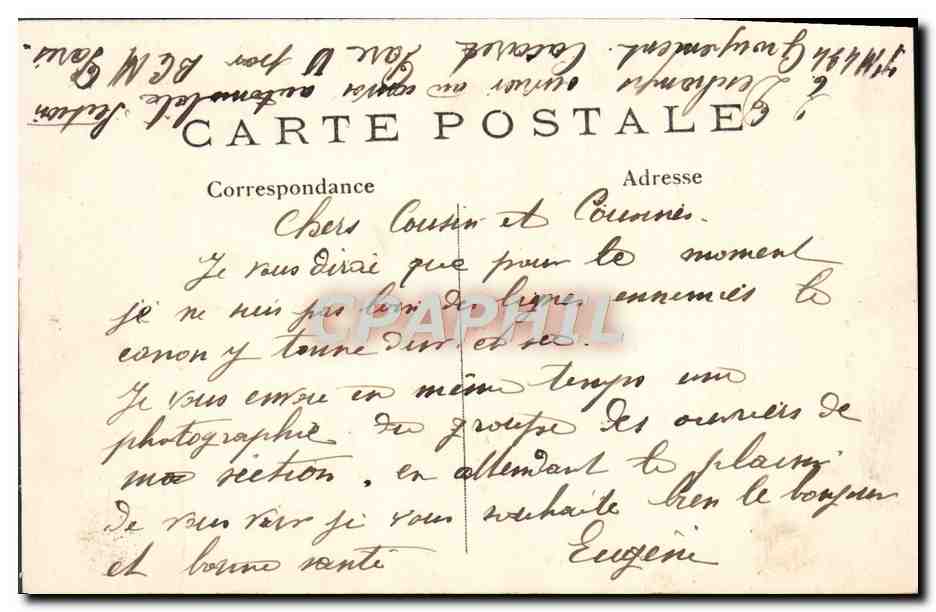 E Deschamps ouvrier au convoi automobile Section
T M 494 Groupement Gare V par B C M Paris.
CARTE POSTALE
Correspondance
Adresse
Chers Cousin et Cousines.
Je vous dirai que pour le moment
je ne suis pas loin des lignes ennemies le
canon y tonne dur et sec.
Je vous envoie en même temps une
photographie du groupe des ouvriers de
ma section. en attendant le plaisir
de vous voir je vous souhaite bien le bonjour
et bonne santé Eugène
CPAPHIL